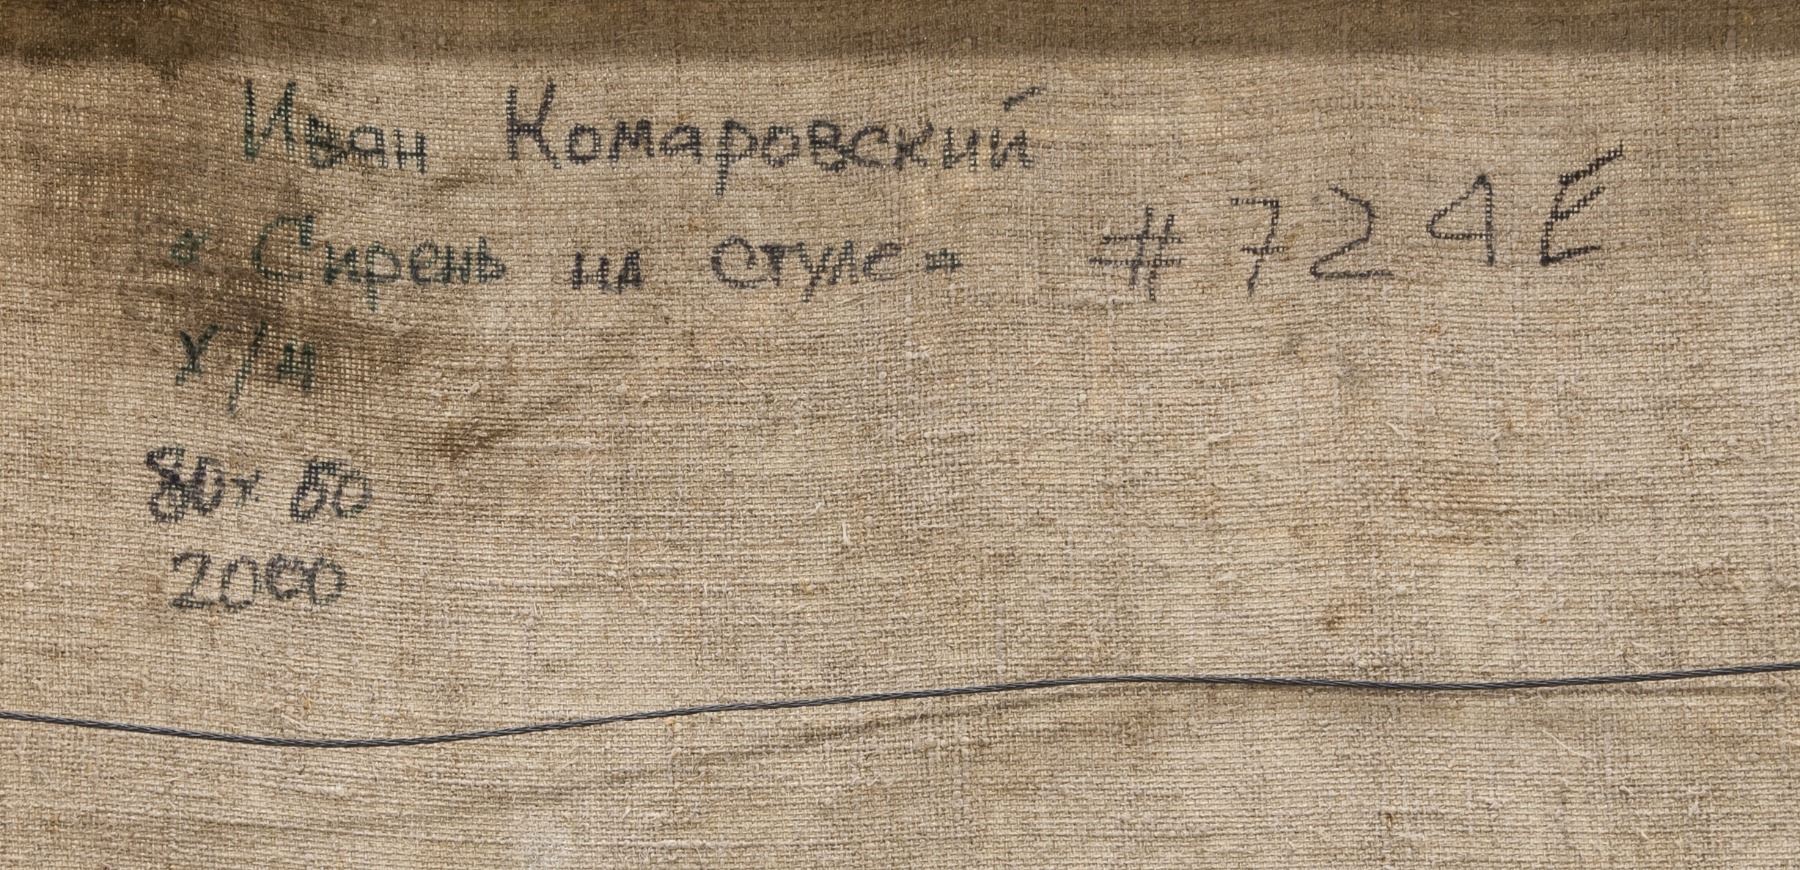 Иван Комаровский
"Сирень на стуле" #724E
х/м
80x60
2000